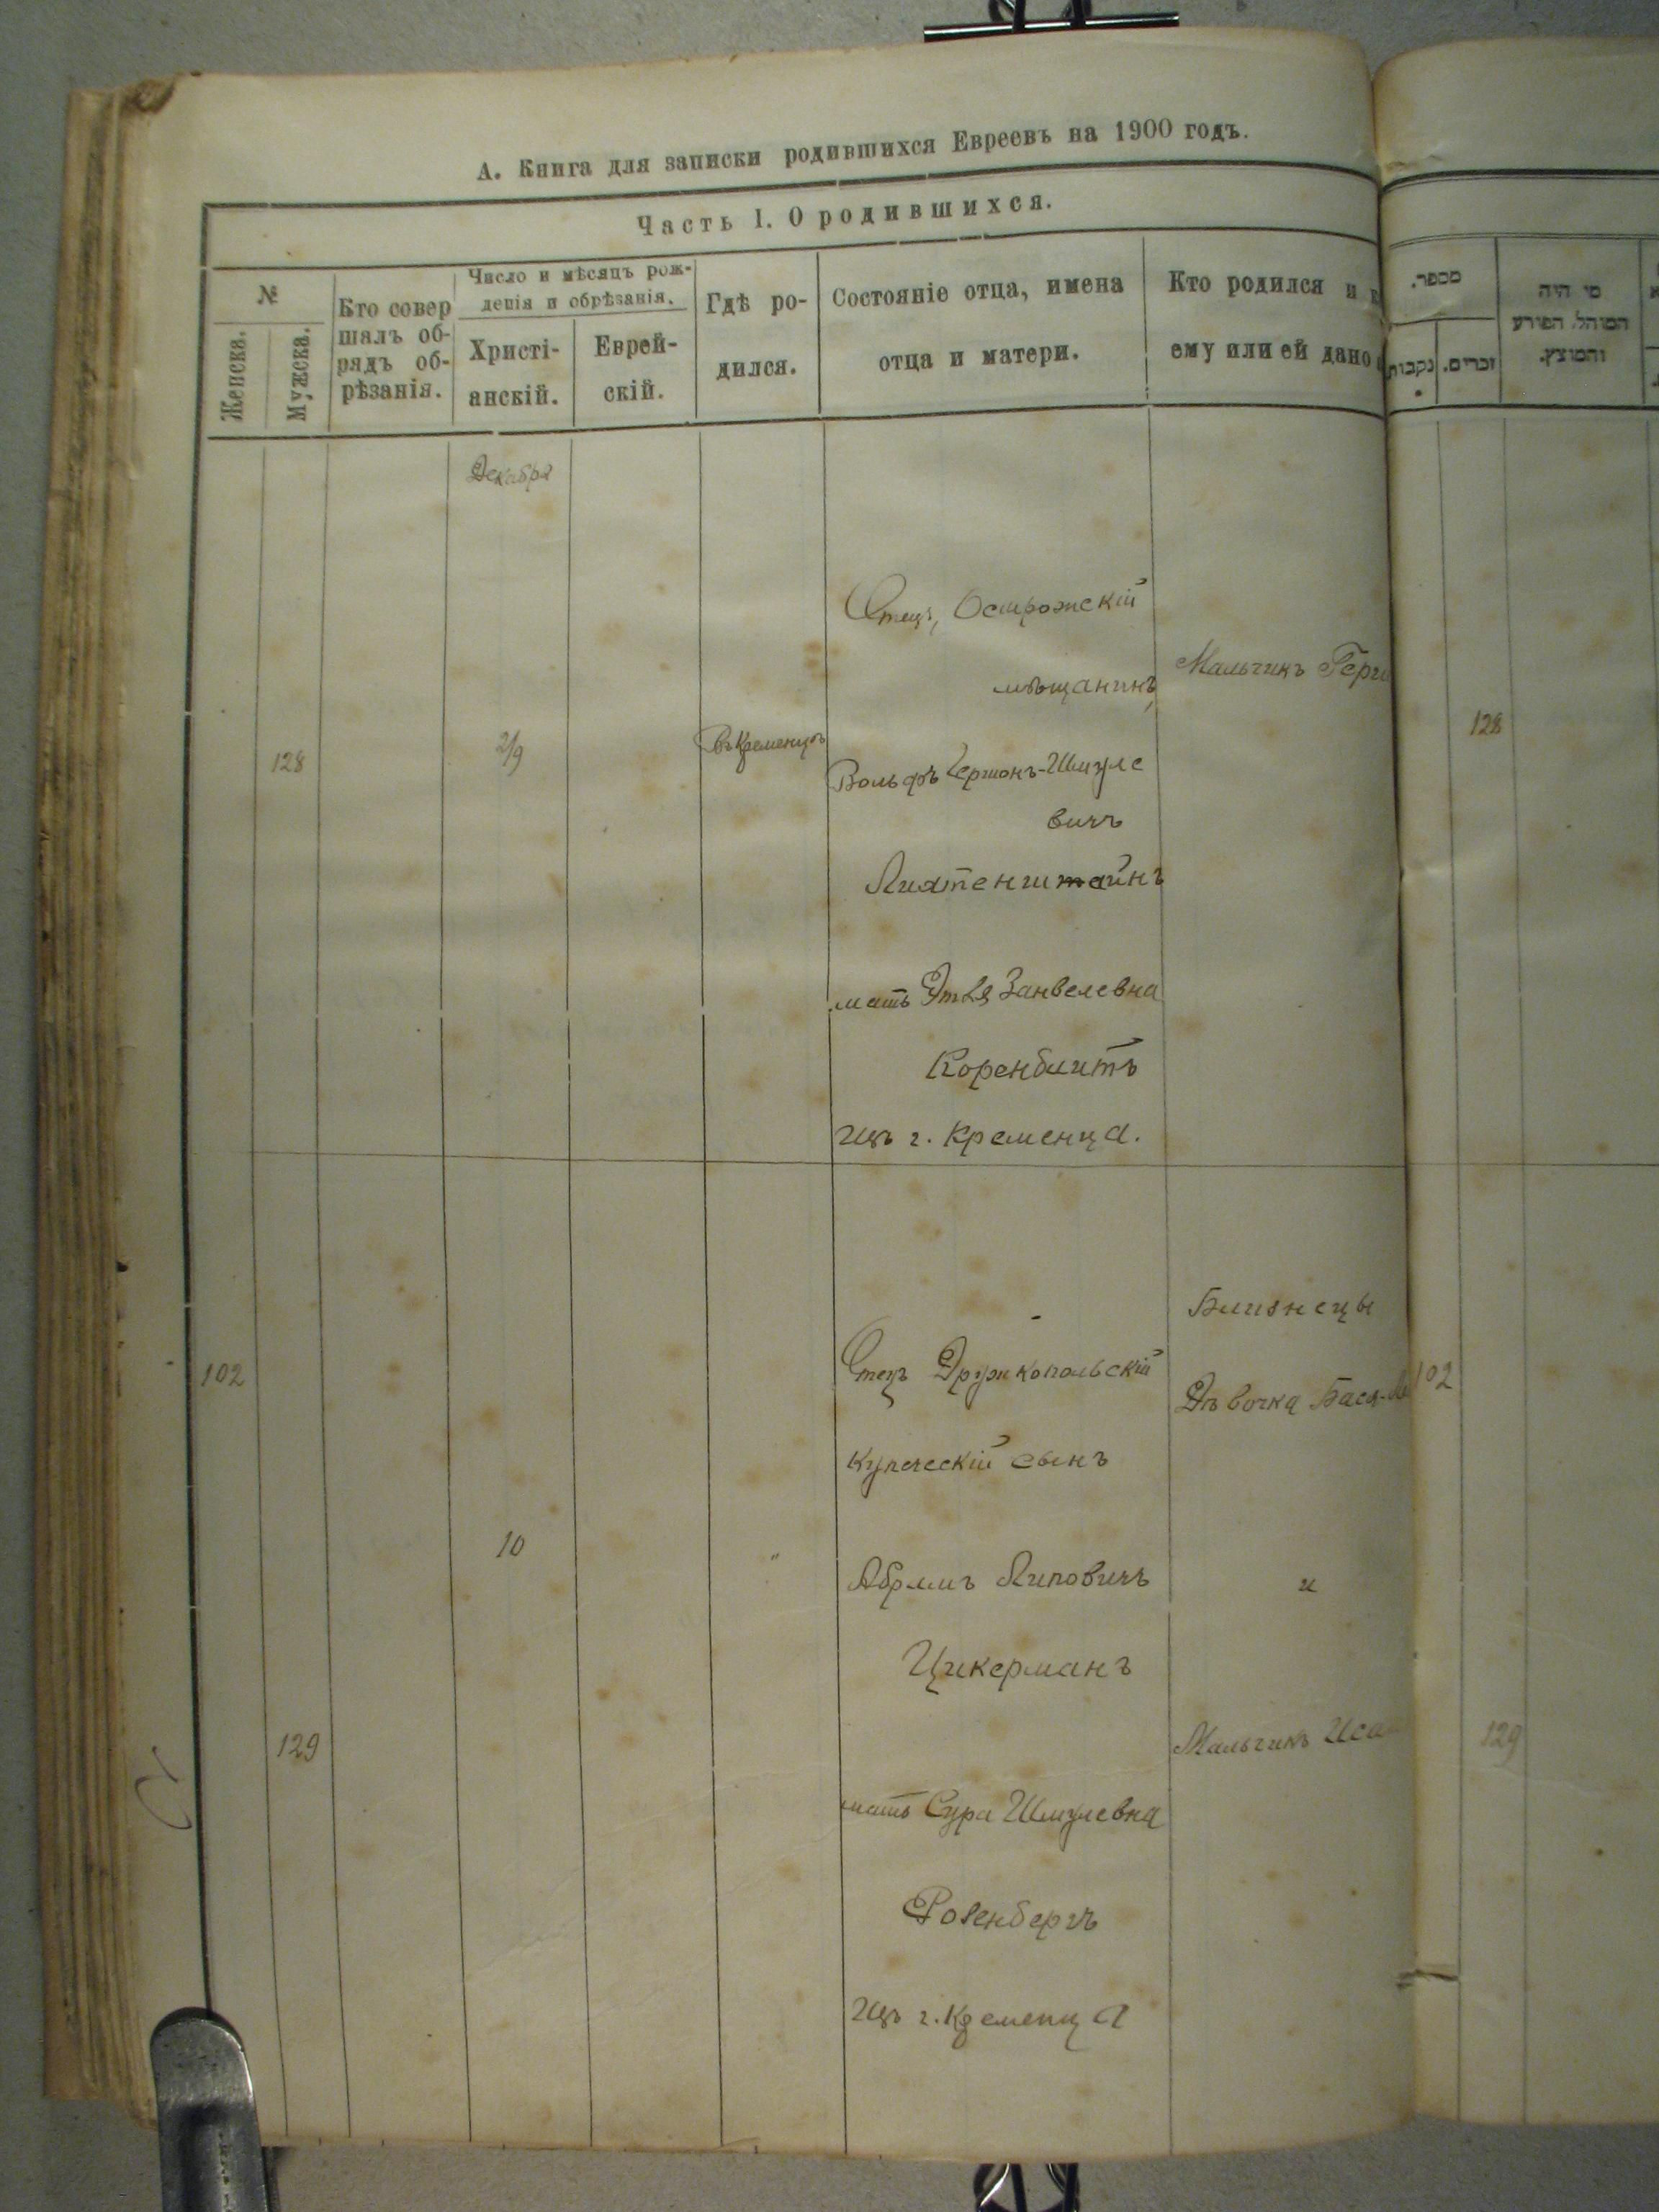 А. Книга для записки родившихся Евреевъ на 1900 годъ.
Часть I. О родившихся.
№
Женска.
Мужска.
Кто совер
шалъ об-
рядъ об-
рѣзанія.
Число и мѣсяцъ рож-
денія и обрѣзанія.
Христі-
анскій.
Еврей-
скій.
Гдѣ ро-
дился.
Состояніе отца, имена
отца и матери.
Кто родился и
ему или ей дано
מספר.
נקבות
זכרים.
מי היה
המוהל, הפורע
והמוצץ.
Декабря
128
2/9
въ Кременцѣ
Отецъ, Острожскій
мѣщанинъ,
Вольфъ Гершонъ-Шмуле
вичъ
Лихтенштейнъ
мать Этля Занвелевна
Коренблитъ
изъ г. Кременца.
Мальчикъ
128
102
129
10
"
Отецъ Дружкопольский
купеческій сынъ
Абрамъ Липовичъ
Цикерманъ
мать Сура Шмулевна
Розенбергъ
изъ г. Кременца
Близнецы
Дѣвочка Бася
и
Мальчикъ
102
129